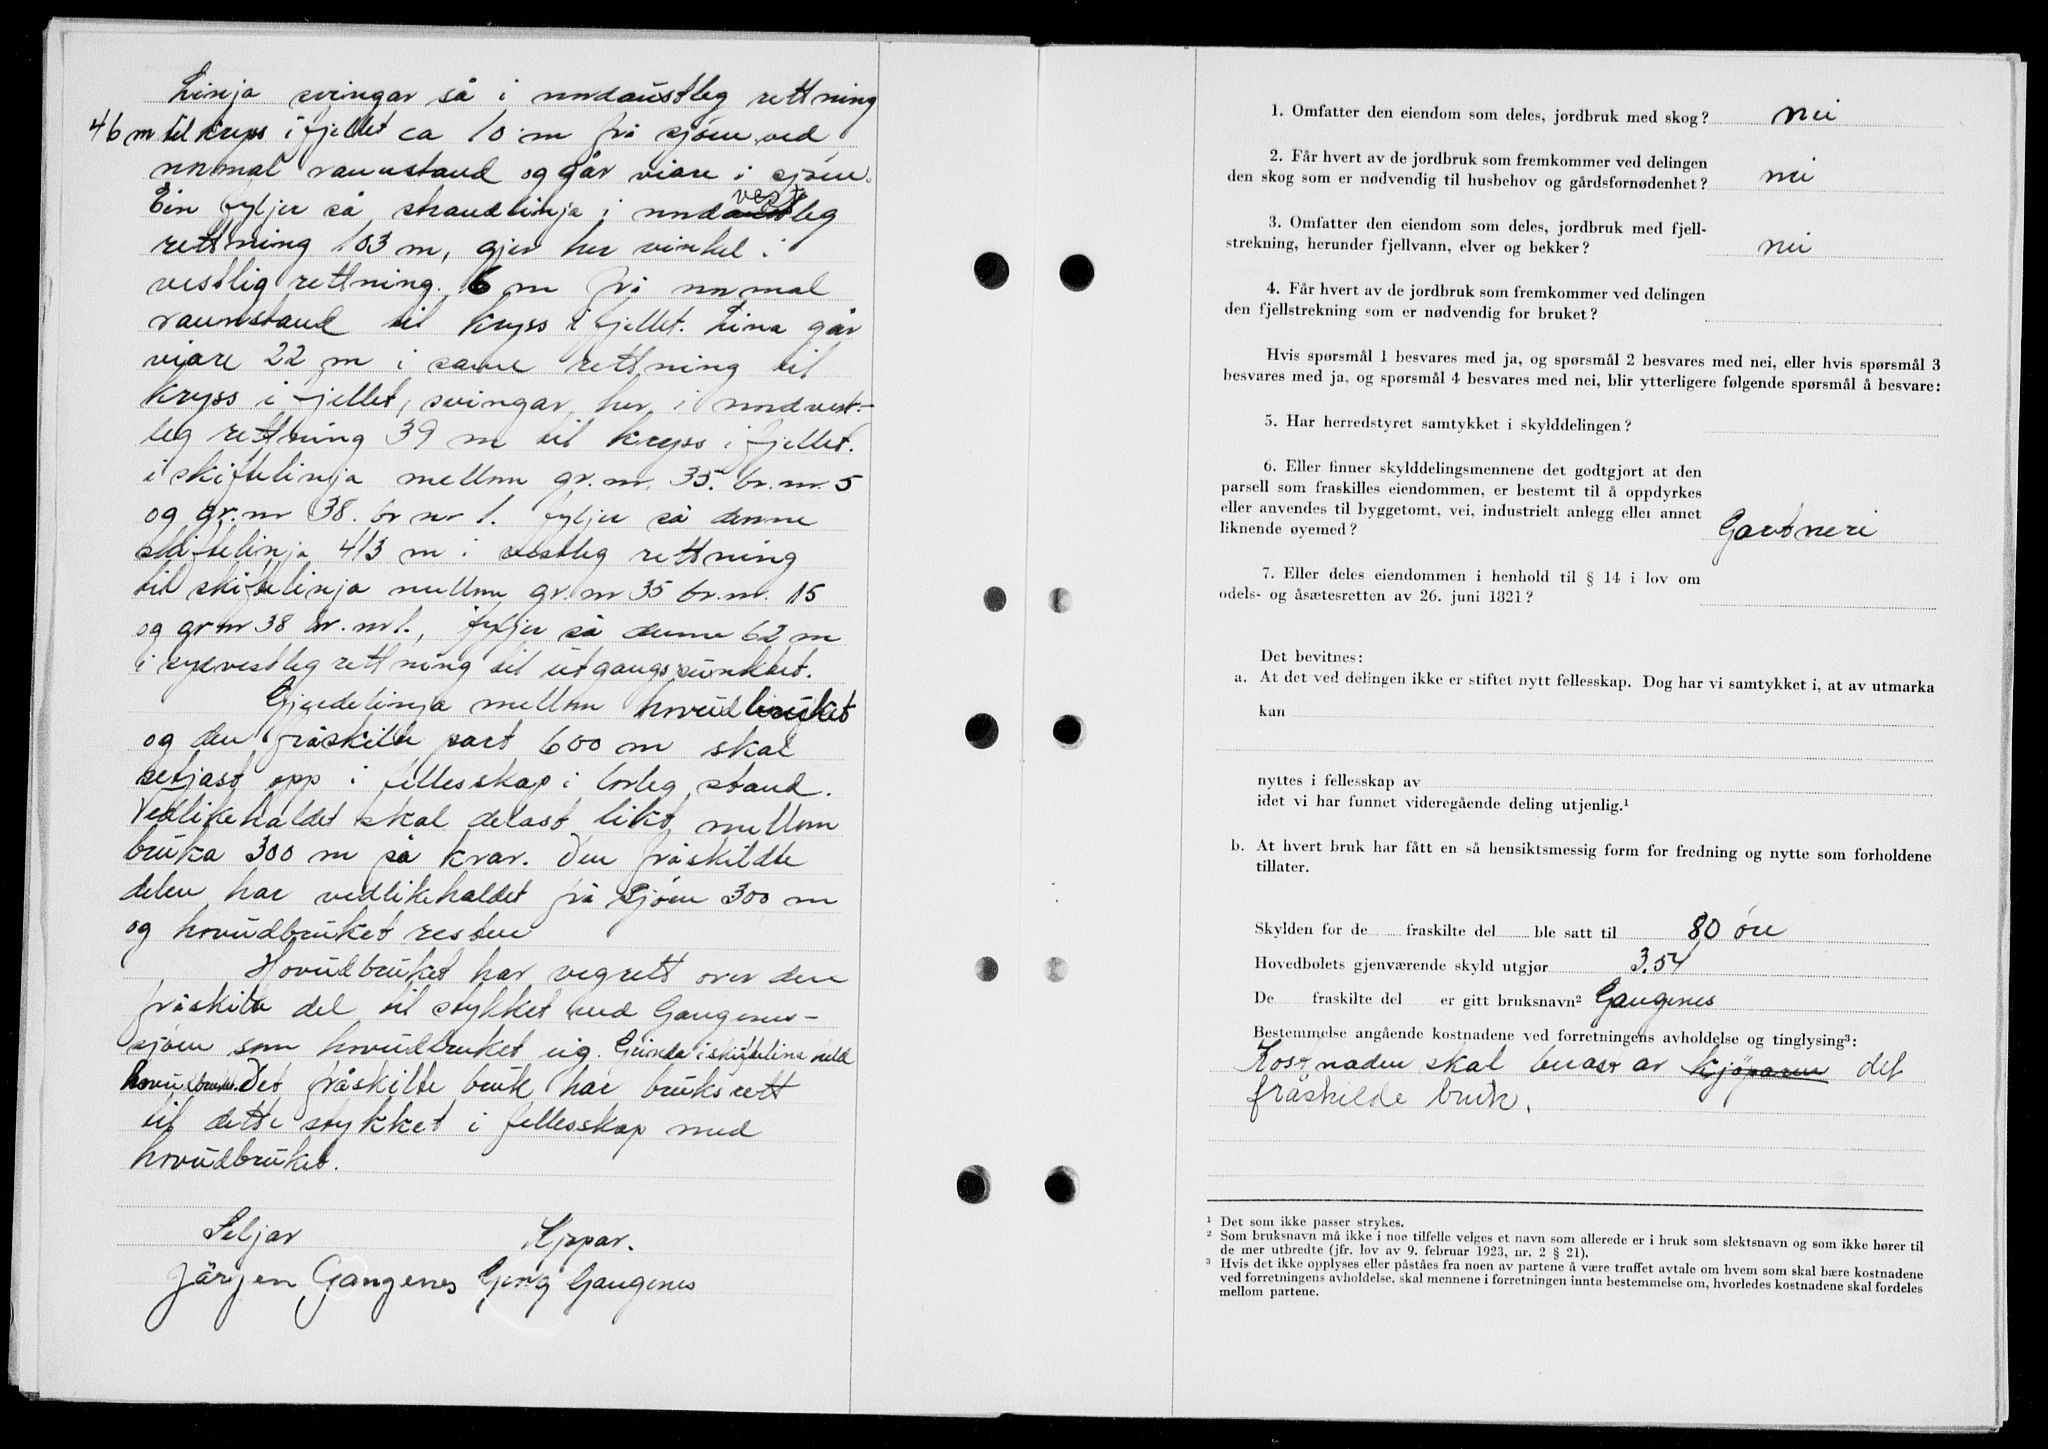 Linja svingar så i nordaustleg rettning
46 m til kryss i fjellet ca 10 m frå sjöen ved
normal vannstand og går viare i sjöen.
Ein fyljer så strandlinja i nordvestleg
rettning 103 m, gjer her vinkel i
vestlig rettning. 6 m frå normal
vannstand til kryss i fjellet. Lina går
viare 22 m i same rettning til
kryss i fjellet, svingar her i nordvest-
leg rettning 39 m til kryss i fjellet.
i skiftelinja mellom gr.nr. 35. br.nr. 5
og gr.nr 38. br nr 1. fyljer så denne
skiftelinja 413 m i vestleg rettning
til skiftelinja mellom gr.nr 35 br.nr. 15
og gr nr 38 br.nr 1., fyljer så denne 62 m
i sydvestleg rettning til utgangspunktet.
Gjerdelinja mellom hovudbruket
og den fråskilte part 600 m skal
setjast opp i fellesskap i lovleg stand.
Vedlikehaldet skal delast likt mellom
bruka 300 m på kvar. Den fråskildte
delen har vedlikehaldet frå sjöen 300 m
og hovudbruket resten
Hovudbruket har vegrett over den
fråskilte del til stykket ved Gangenes-
sjöen som hovudbruket eig. Grinda i skiftelina held
hovudbruket. Det fråskilte bruk har bruksrett
til dette stykket i fellesskap med
hovudbruket.
Seljar Kjøpar.
Jörgen Gangenes Georg Gangenes
1. Omfatter den eiendom som deles, jordbruk med skog? nei
2. Får hvert av de jordbruk som fremkommer ved delingen
den skog som er nødvendig til husbehov og gårdsfornødenhet? nei
3. Omfatter den eiendom som deles, jordbruk med fjell-
strekning, herunder fjellvann, elver og bekker? nei
4. Får hvert av de jordbruk som fremkommer ved delingen
den fjellstrekning som er nødvendig for bruket?
Hvis spørsmål 1 besvares med ja, og spørsmål 2 besvares med nei, eller hvis spørsmål 3
besvares med ja, og spørsmål 4 besvares med nei, blir ytterligere følgende spørsmål å besvare:
5. Har herredstyret samtykket i skylddelingen?
6. Eller finner skylddelingsmennene det godtgjort at den
parsell som fraskilles eiendommen, er bestemt til å oppdyrkes
eller anvendes til byggetomt, vei, industrielt anlegg eller annet
liknende øyemed? Gartneri
7. Eller deles eiendommen i henhold til § 14 i lov om
odels- og åsætesretten av 26. juni 1821?
Det bevitnes:
a. At det ved delingen ikke er stiftet nytt fellesskap. Dog har vi samtykket i, at av utmarka
kan
nyttes i fellesskap av
idet vi har funnet videregående deling utjenlig.¹
b. At hvert bruk har fått en så hensiktsmessig form for fredning og nytte som forholdene
tillater.
Skylden for de fraskilte del ble satt til 80 öre
Hovedbølets gjenværende skyld utgjør 3.54
De fraskilte del er gitt bruksnavn² Gangenes
Bestemmelse angående kostnadene ved forretningens avholdelse og tinglysing³:
Kostnaden skal berast av kjöparen det
fråskilde bruk.
¹ Det som ikke passer strykes.
² Som bruksnavn må ikke i noe tilfelle velges et navn som allerede er i bruk som slektsnavn og som ikke hører til
de mer utbredte (jfr. lov av 9. februar 1923, nr. 2 § 21).
³ Hvis det ikke opplyses eller påståes fra noen av partene å være truffet avtale om hvem som skal bære kostnadene
ved forretningens avholdelse, skal mennene i forretningen innta bestemmelse om, hvorledes kostnadene skal fordeles
mellom partene.